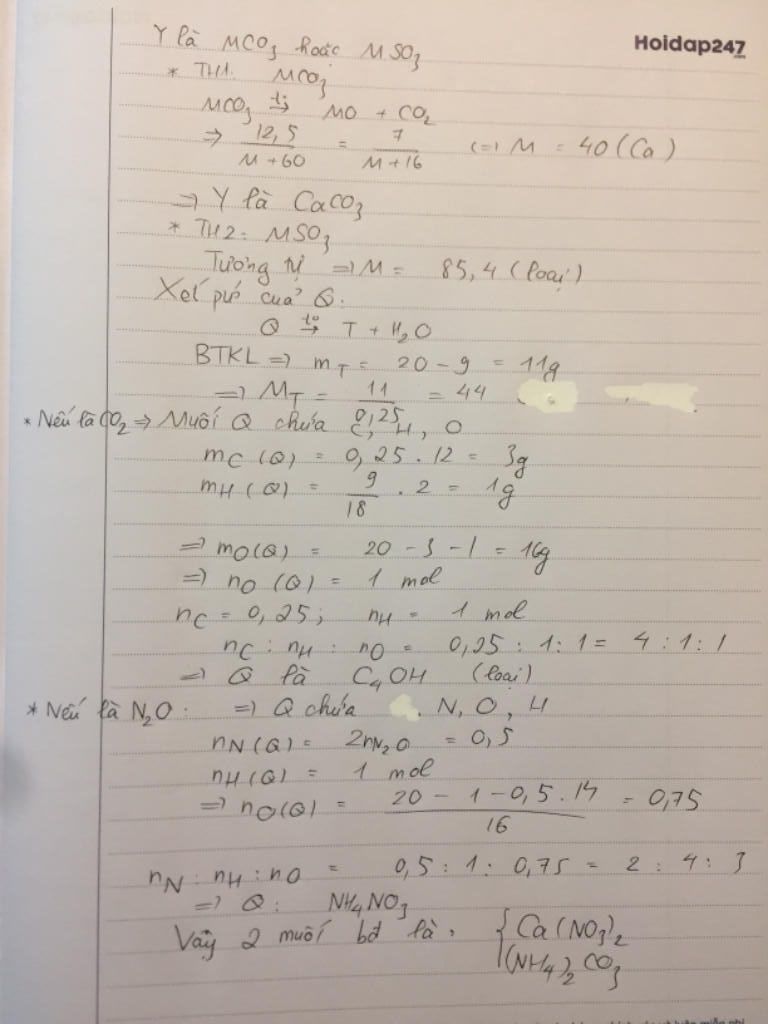 Hoidap247
.com
Y là MCO3 hoặc MSO3
* TH1. MCO3
MCO3 t°→ MO + CO2
=> 12,5/(M+60) = 7/(M+16) (=) M = 40 (Ca)
=> Y là CaCO3
* TH2: MSO3
Tương tự => M = 85,4 (loại)
Xét pứ của Q:
Q to→ T + H2O
BTKL => mT = 20 - 9 = 11g
=> MT = 11/0,25 = 44
* Nếu là CO2 => Muối Q chứa C, H, O
mC (Q) = 0,25 . 12 = 3g
mH (Q) = 9/18 . 2 = 1g
=> mO(Q) = 20 - 3 - 1 = 16g
=> nO (Q) = 1 mol
nC = 0,25; nH = 1 mol
nC : nH : nO = 0,25 : 1 : 1 = 4 : 1 : 1
=> Q là C4OH (loại)
* Nếu là N2O: => Q chứa N, O, H
nN (Q) = 2nN2O = 0,5
nH (Q) = 1 mol
=> nO(Q) = (20 - 1 - 0,5 . 14)/16 = 0,75
nN : nH : nO = 0,5 : 1 : 0,75 = 2 : 4 : 3
=> Q: NH4NO3
Vậy 2 muối bđ là: { Ca(NO3)2
(NH4)2CO3